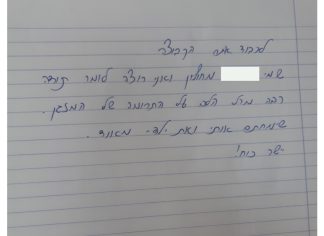 לכבוד אתר הקבוצה
שמי מחולון ואני רוצה לומר תודה
רבה מכל הלב על התרומה של המזגן.
שימחתם אותי ואת ילדי מאוד.
ישר כוח!